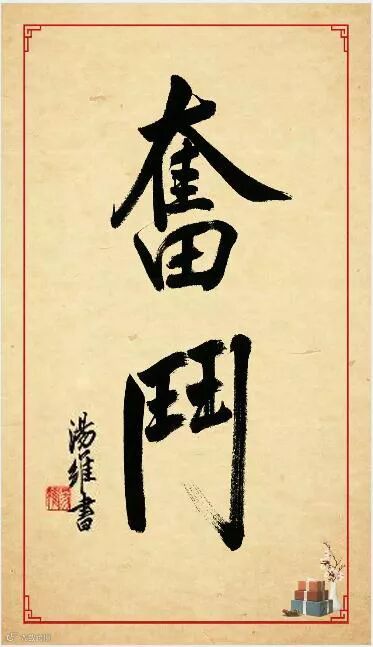 奮
鬥
湯維書